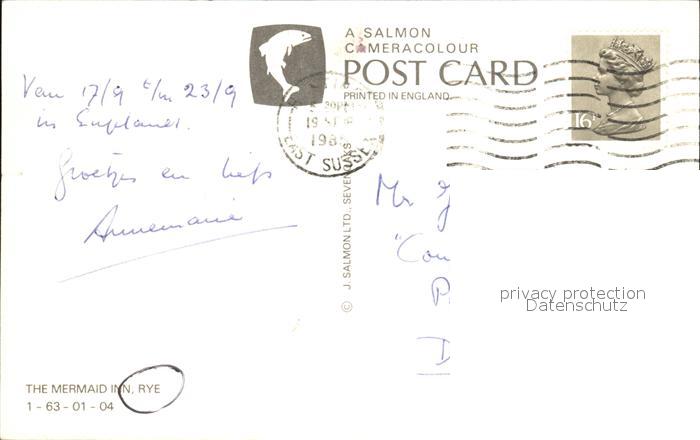 A SALMON
CAMERACOLOUR
POST CARD
PRINTED IN ENGLAND.
16P
19 SE
198
EAST SUSSEX
Van 17/9 t/m 23/9
in England.
Groetjes en liefs
Annemarie
© J. SALMON LTD., SEVENOAKS
Mr
"Con
P
D
privacy protection
Datenschutz
THE MERMAID INN, RYE
1 - 63 - 01 - 04